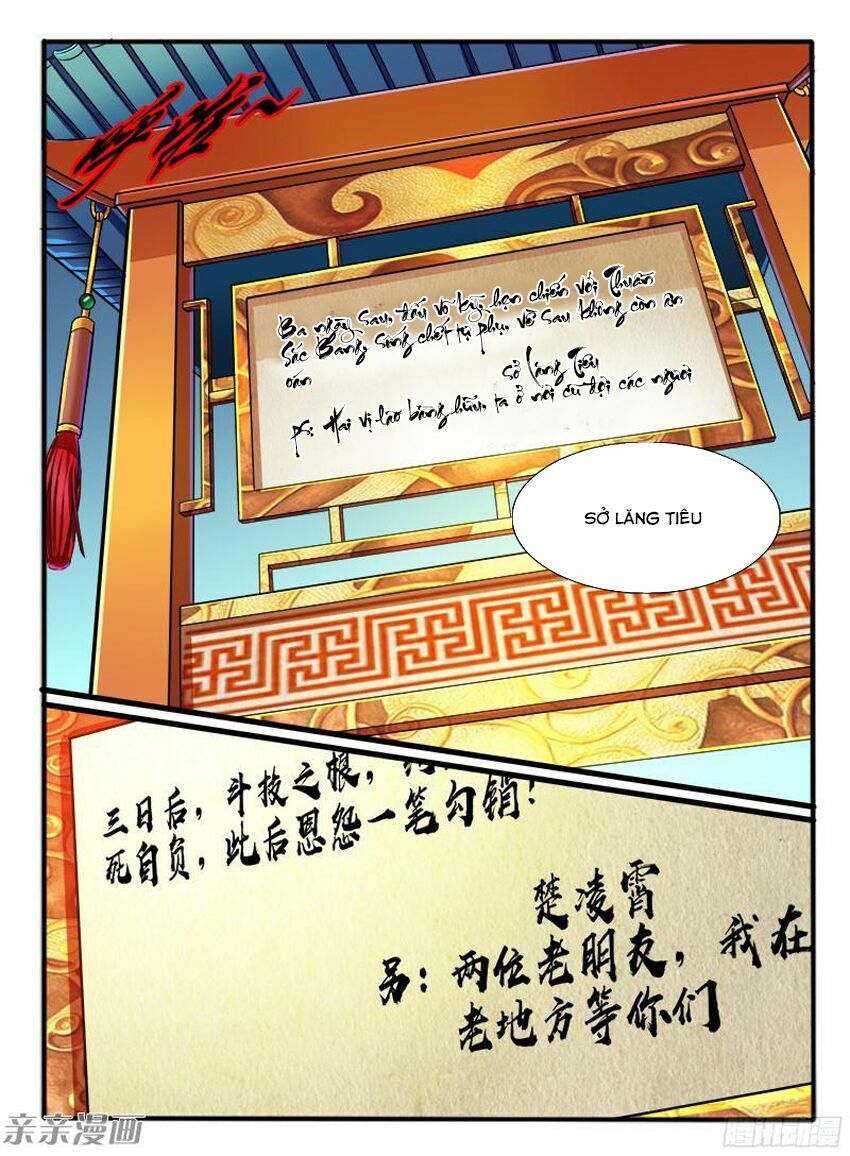 Ba ngày sau, đấu võ kỳ, hẹn chiến với Thuần
Sác Bang, sống chết tự phụ, về sau không còn ân
oán
Sở Lăng Tiêu
PS: Hai vị lão bằng hữu, ta ở nơi cũ đợi các ngươi
SỞ LĂNG TIÊU
三日后，斗技之根，
死自负，此后恩怨一笔勾销！
楚凌霄
另：两位老朋友，我在
老地方等你们
亲亲漫画
腾讯动漫